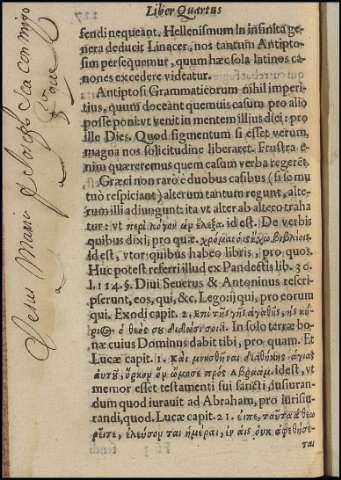 Liber Quartus
sendi nequeant. Hellenismum in infinita ge-
nera deducit Linacer, nos tantum Antipto-
sim persequemur, quum hæc sola latinos ca-
nones excedere videatur.
Antiptosi Grammaticorum nihil imperi-
tius, quum doceant quemuis casum pro alio
posse poni: vt venit in mentem illius diei: pro
ille Dies. Quod figmentum si esset verum,
magna nos solicitudine liberaret. Frustra e-
nim quæreremus quem casum verba regerēt.
Græci non raro è duobus casibus (si se mu
tuò respiciant) alterum tantum regunt, alte-
rum illi adiungunt: ita vt alter ab altero traha
tur: vt περὶ λόγων ὧν ἔλεξα. id est. De verbis
quibus dixi, pro quæ.
id est, vtor quibus habeo libris, pro, quos.
Huc potest referri illud ex Pandectis lib. 30.
l. 114. §. Diui Seuerus & Antoninus rescri-
pserunt, eos, qui, &c. Lego: ij qui, pro eorum
qui. Exodi capit. 2. ἐπὶ τῆς γῆς ἀγαθῆς, ἧς κύ-
ρι@ ὁ θεός σου In solo terræ bo-
næ cuius Dominus dabit tibi, pro, quam. Et
Lucæ capit. 1. καὶ μνησθῆναι διαθήκης ἁγίας
αυτοῦ, ὅρκον ὃν ὤμοσε πρὸς Αβραάμ. Id est, vt
memor esset testamenti sui sancti, iusiuran-
dum quod iurauit ad Abraham, pro iurisiu-
randi, quod. Lucæ capit. 21.
ἡμέραι, ἐν αἷς οὐκ ἀφεθήσε-
ται
Jesus Maria y Joseph sea con migo